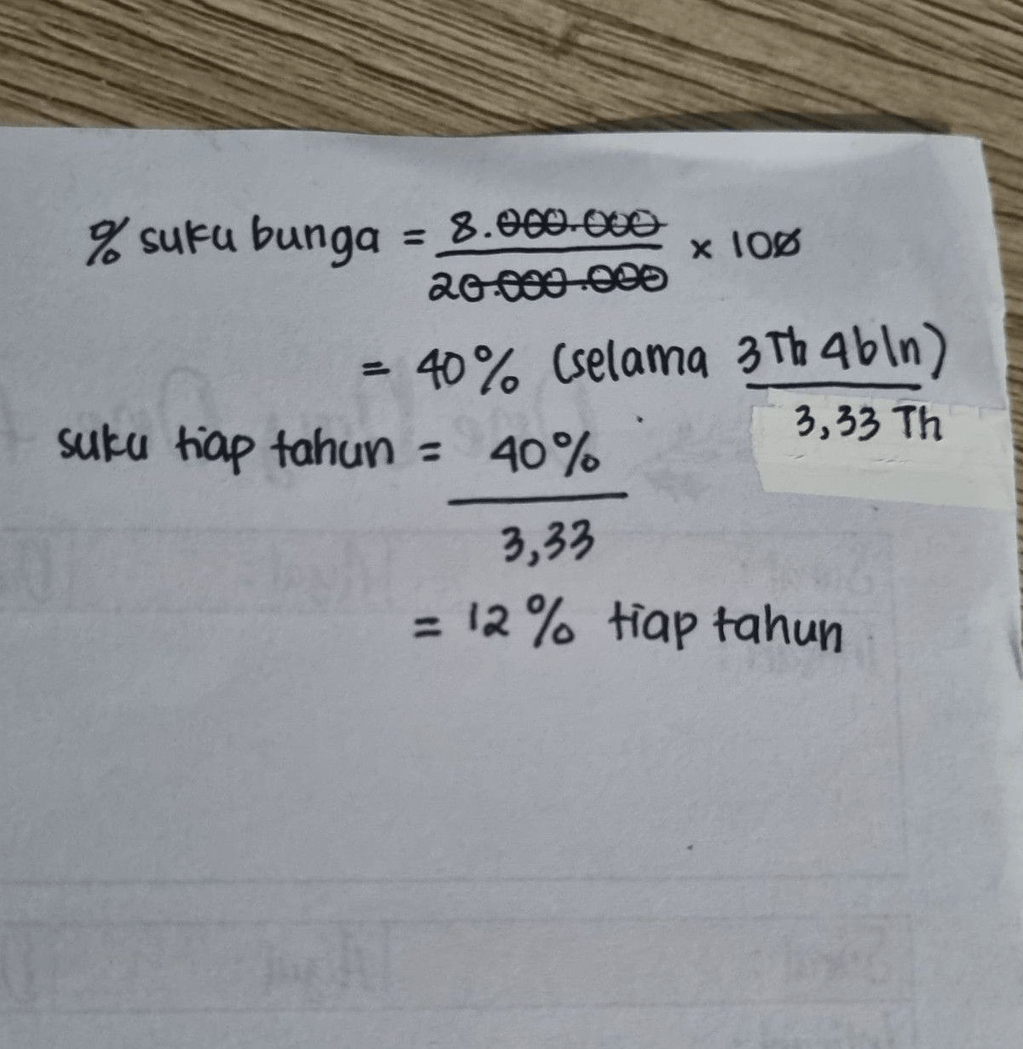 % suku bunga = 8.000.000 / 20.000.000 x 100
= 40% (selama 3 Th 4 bln)
3,33 Th
suku tiap tahun = 40% / 3,33
= 12% tiap tahun